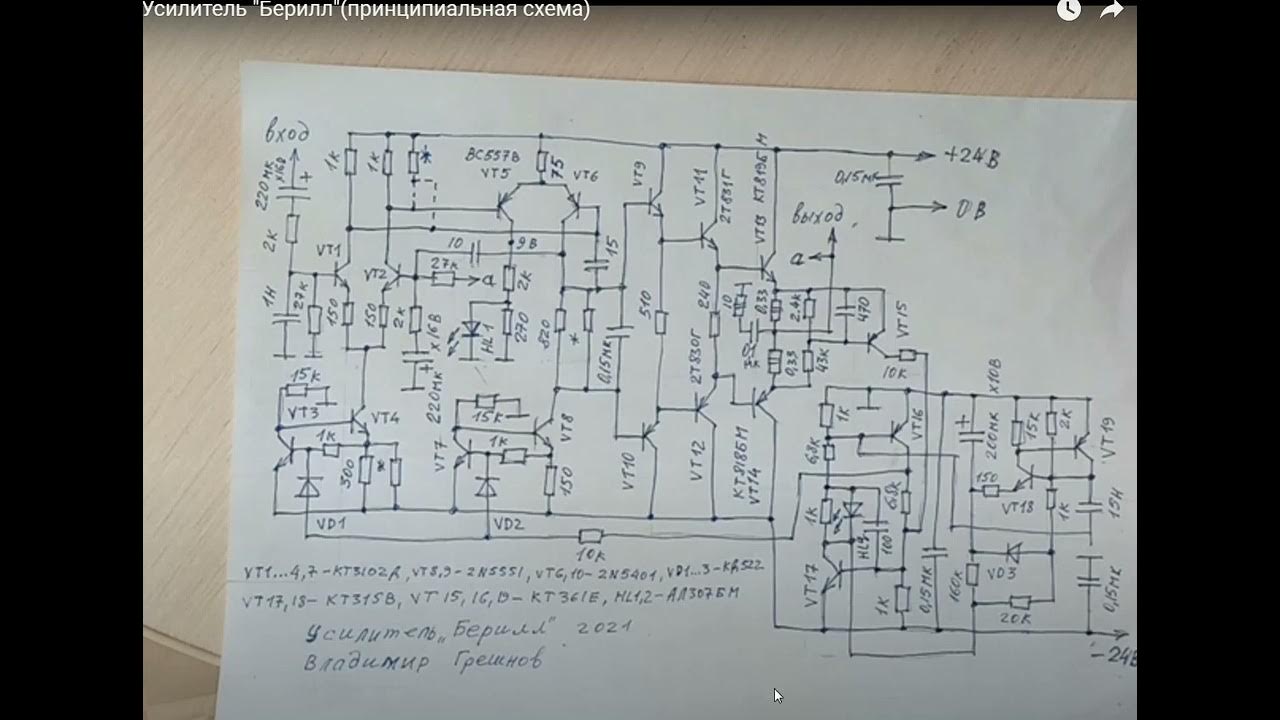 Усилитель "Берилл"(принципиальная схема)
вход
220мк х16В
+
2к
1Н
27к
1к
1к
*
VT1
VT2
150
150
10
27к
а
2к
220мк х16В
+
BC557B
VT5
75
VT6
9В
2к
HL1
270
820
*
15
0,15мк
VT9
510
VT10
VT11
2Т831Г
240
2Т830Г
VT12
VT13 КТ819БМ
КТ818БМ
VT14
10
0,33
0,33
2.4к
43к
470
VT15
10к
выход
а
0,15мк
+24В
0В
15к
VT3
VT4
1к
300
*
VD1
15к
VT7
1к
VT8
150
VD2
10к
1к
6,8к
1к
VT16
6.8к
HL2
100
VT17
1к
0,15мк
+
200мк
х10В
15к
2к
VT19
150
VT18
1к
15Н
VD3
160к
20к
0,15мк
-24В
VT1...4,7-КТ3102Д, VT8,9-2N5551, VT6,10-2N5401, VD1...3-КД522
VT17,18- КТ315В, VT15,16,19- КТ361Е, HL1,2-АЛ307БМ
Усилитель „Берилл" 2021
Владимир Грешнов